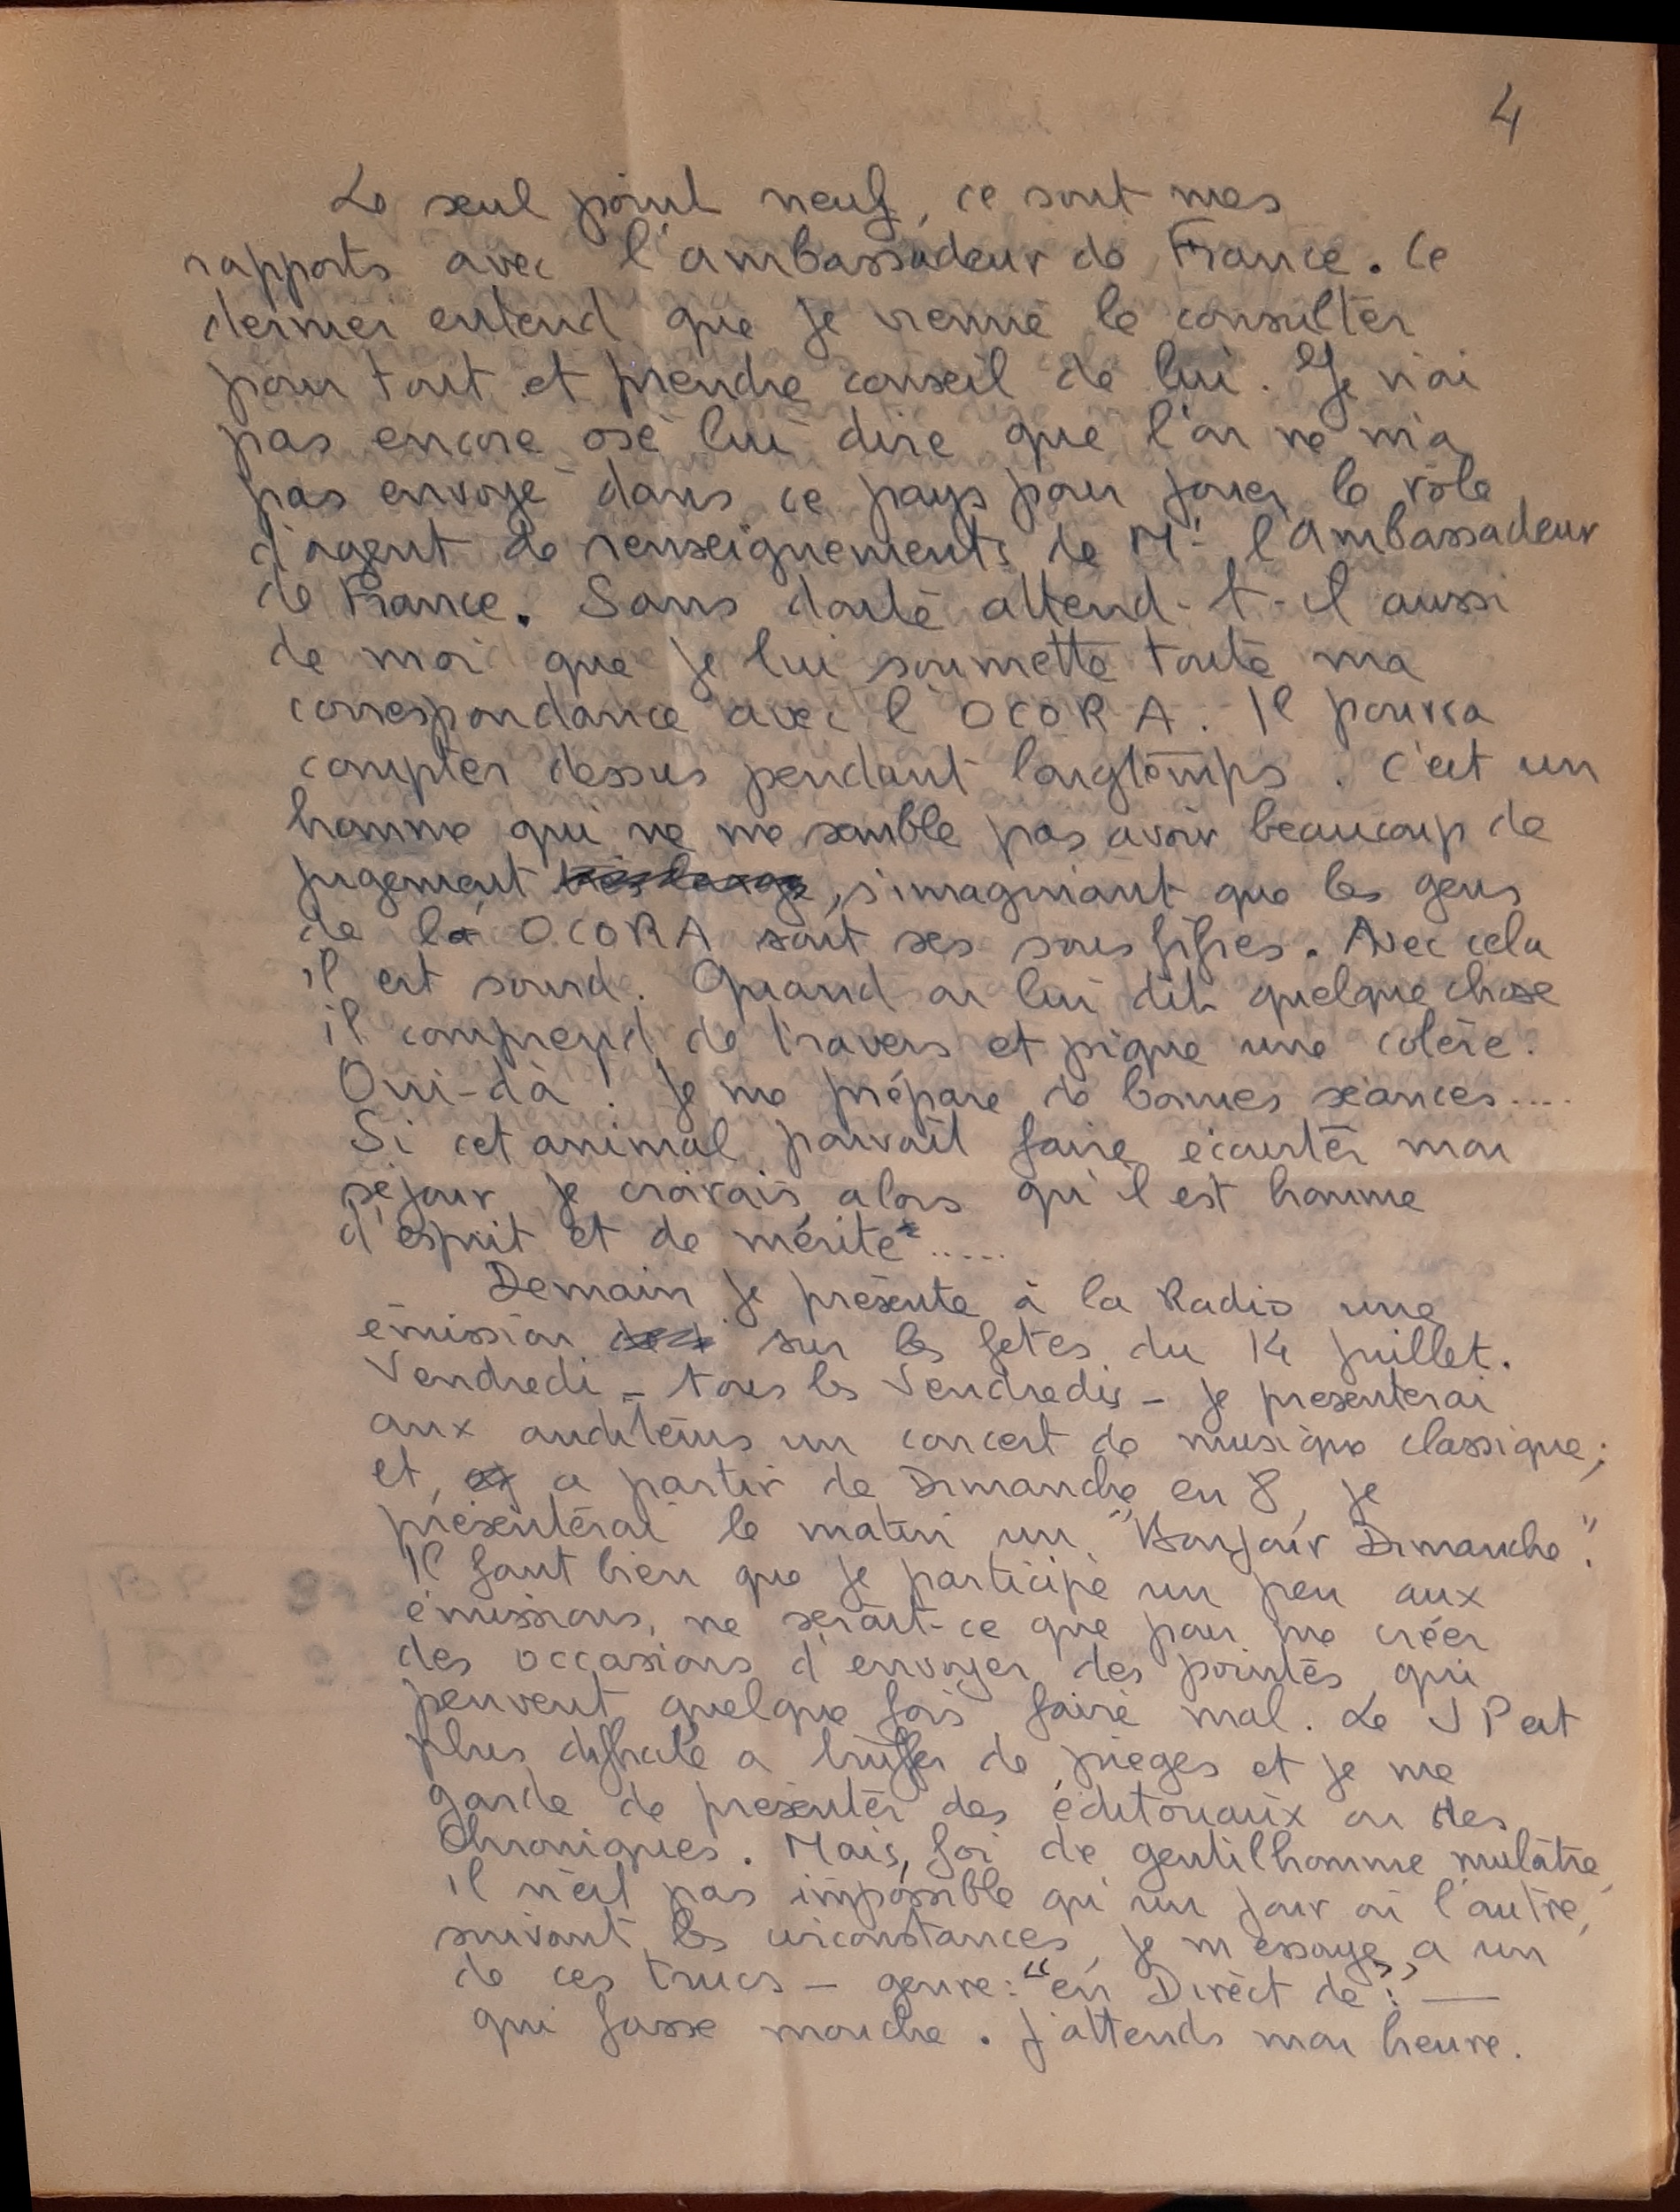 4
Le seul point neuf, ce sont mes
rapports avec l'ambassadeur de France. Ce
dernier entend que je vienne le consulter
pour tout et prendre conseil de lui. Je n'ai
pas encore osé lui dire que l'on ne m'a
pas envoyé dans ce pays pour jouer le rôle
d'agent de renseignements de Mr l'Ambassadeur
de France. Sans doute attend-t-il aussi
de moi que je lui soumette toute ma
correspondance avec l'OCORA. Il pourra
compter dessus pendant longtemps. C'est un
homme qui ne me semble pas avoir beaucoup de
jugement, s'imaginant que les gens
de l' OCORA sont ses sous fifres. Avec cela
il est sourd. Quand on lui dit quelque chose
il comprend de travers et pique une colère.
Oui-dà ! Je me prépare de bonnes séances....
Si cet animal pouvait faire écourter mon
séjour je croirais alors qu'il est homme
d'esprit et de mérite.....
Demain je présente à la Radio une
émission sur les fetes du 14 juillet.
Vendredi - tous les Vendredis - je presenterai
aux auditeurs un concert de musique classique;
et, a partir de Dimanche en 8, je
présenterai le matin un "Bonjour Dimanche".
Il faut bien que je participe un peu aux
émissions, ne serait-ce que pour me créer
des occasions d'envoyer des pointes qui
peuvent quelque fois faire mal. Le J P est
plus difficile a truffer de pièges et je me
garde de présenter des éditoriaux ou des
Chroniques. Mais, foi de gentilhomme mulâtre,
il n'est pas impossible qu'un jour ou l'autre,
suivant les circonstances, je m'essaye a un
de ces trucs - genre: "en Direct de": —
qui fasse mouche. J'attends mon heure.